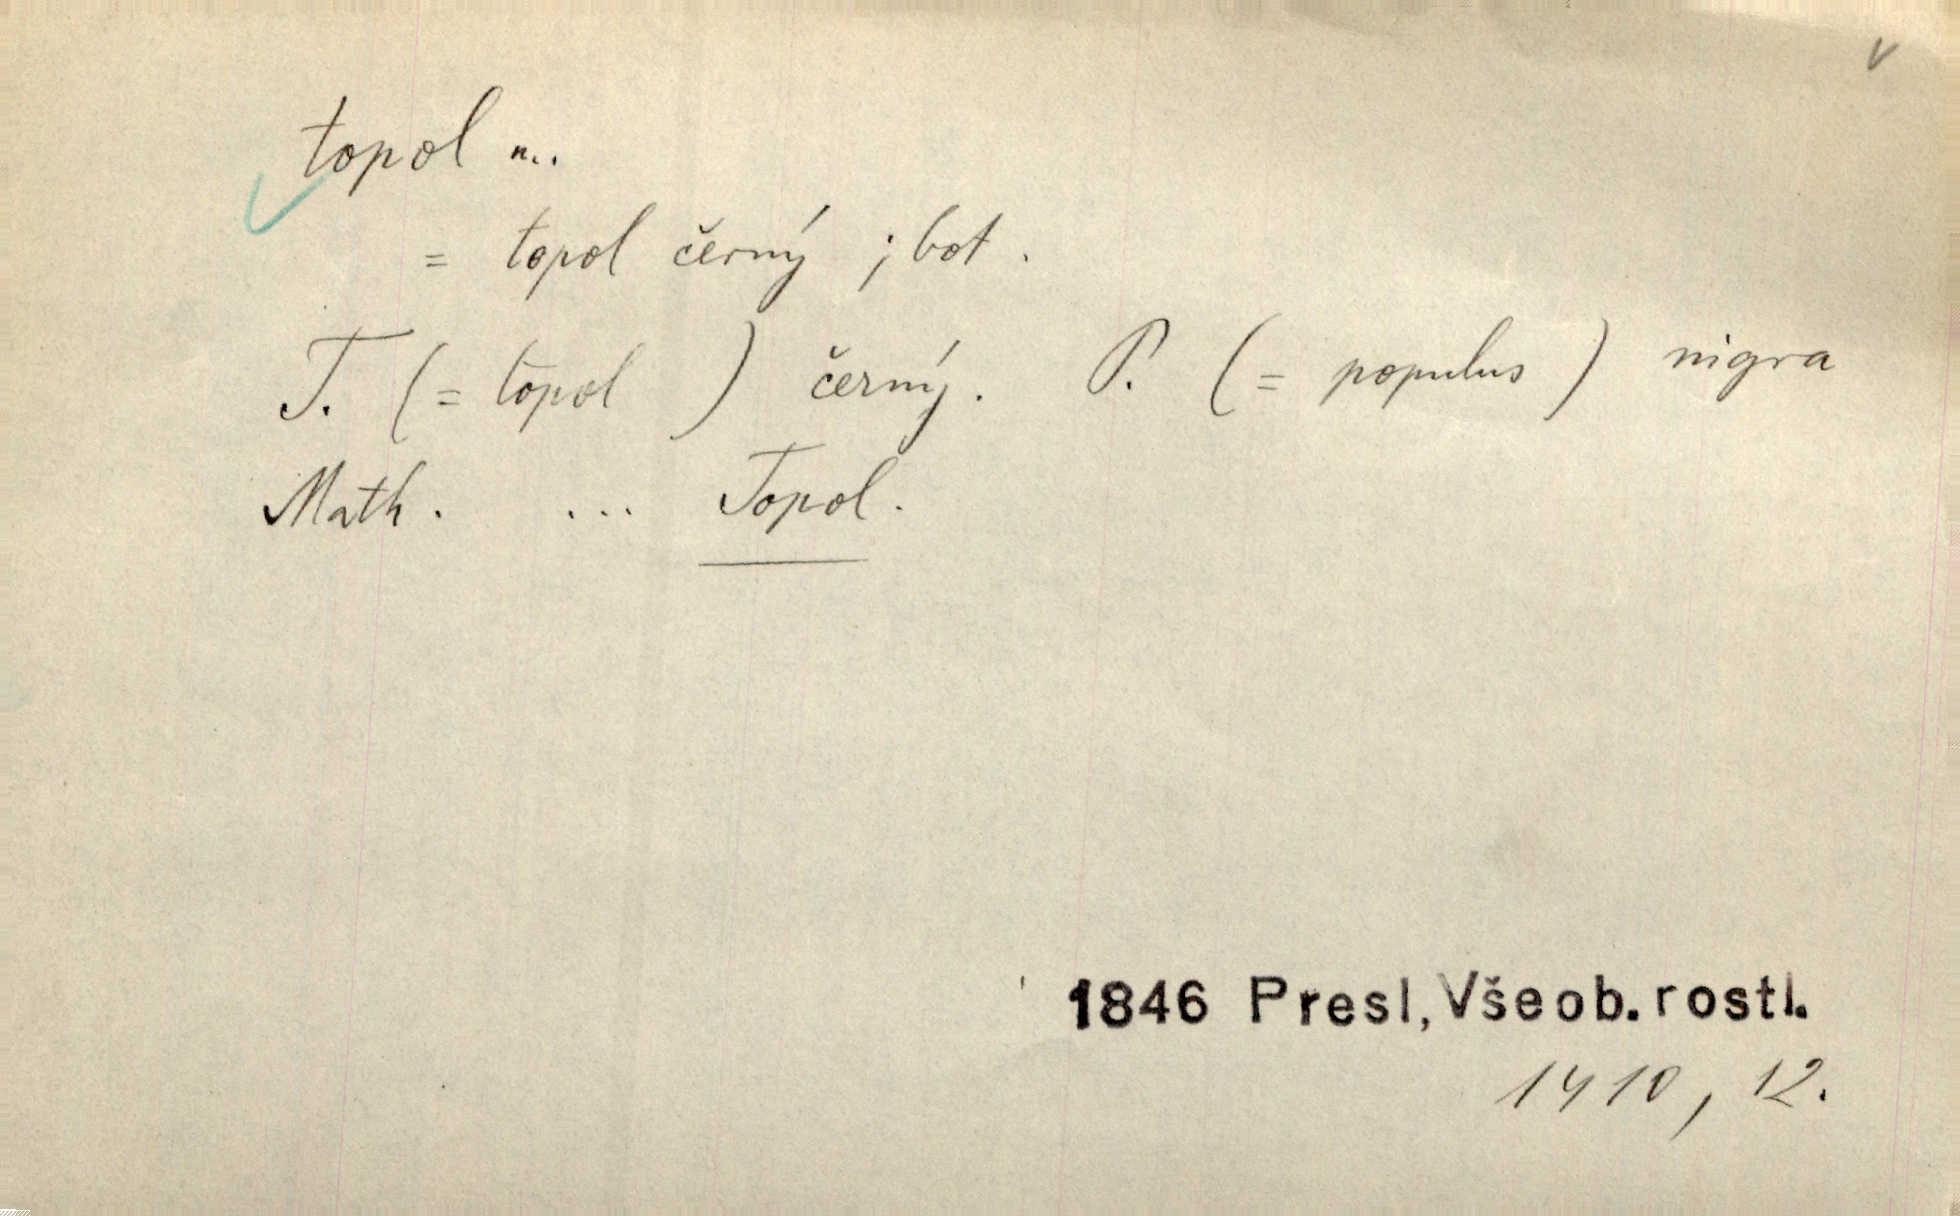 topol m.
= topol černý ; bot.
T. (= topol ) černý. P. (= populus) nigra
Math. ... Topol.
1846 Presl, Všeob. rostl.
1410, 12.